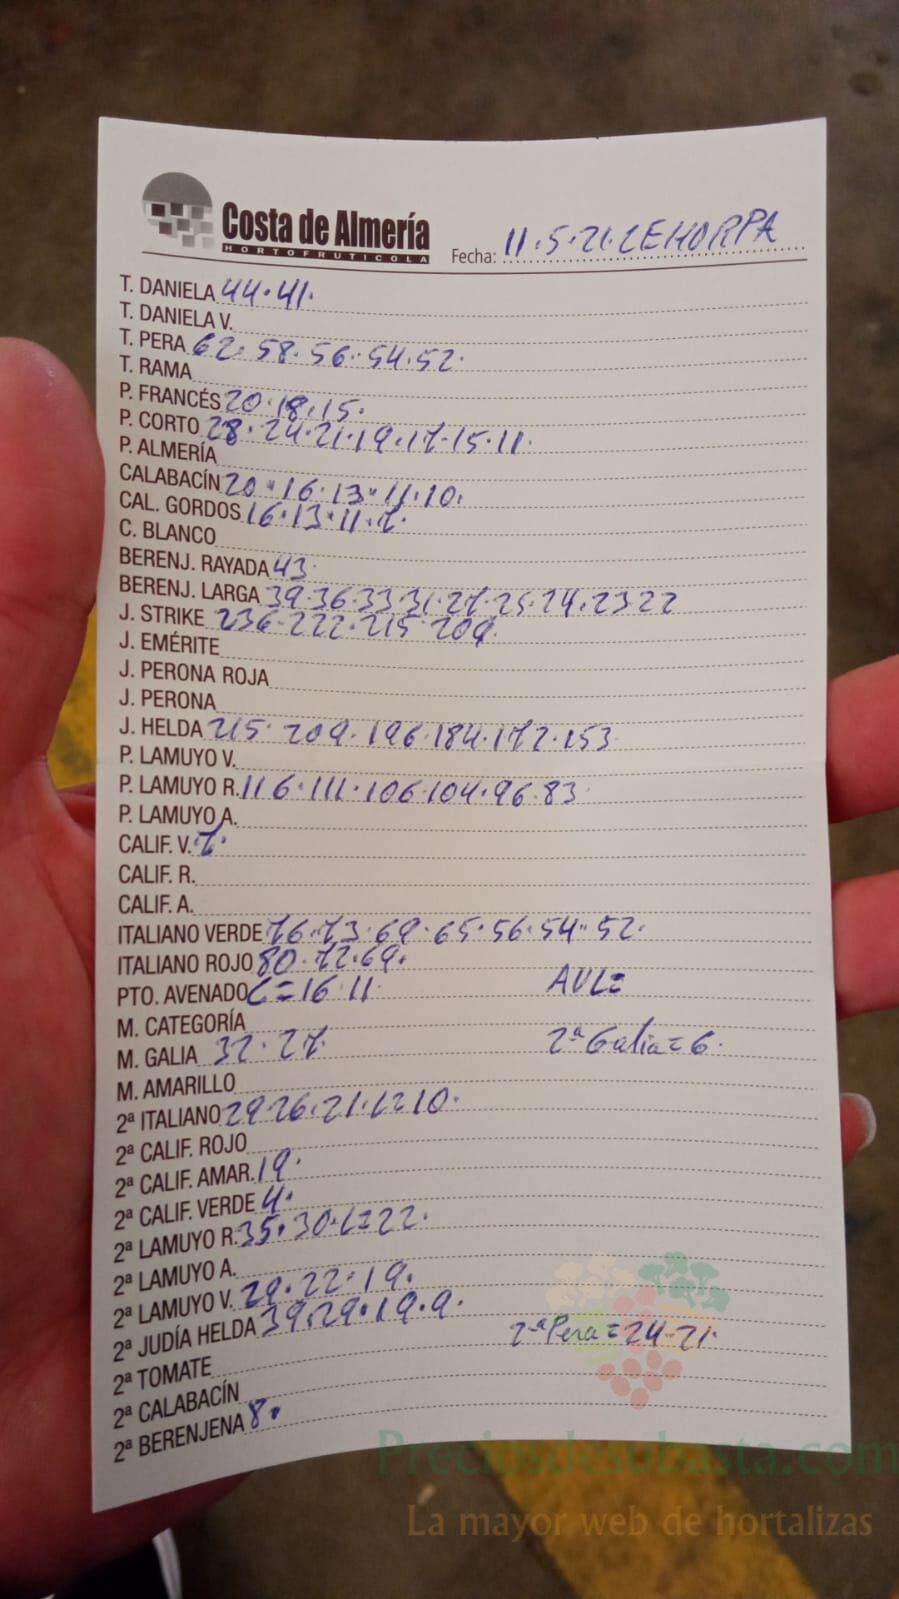 Costa de Almería
HORTOFRUTICOLA
Fecha: 11.5.21. CEHORPA
T. DANIELA 44.41.
T. DANIELA V.
T. PERA 62.58.56.54.52.
T. RAMA
P. FRANCÉS 20.18.15.
P. CORTO 28.24.21.19.17.15.11.
P. ALMERÍA
CALABACÍN 20.16.13.11.10.
CAL. GORDOS 16.13.11.7.
C. BLANCO
BERENJ. RAYADA 43.
BERENJ. LARGA 39.36.33.31.27.25.24.23 22
J. STRIKE 236.222.215.209.
J. EMÉRITE
J. PERONA ROJA
J. PERONA
J. HELDA 215.209.196.184.172.153.
P. LAMUYO V.
P. LAMUYO R. 116.111.106.104.96.83.
P. LAMUYO A.
CALIF. V. 7.
CALIF. R.
CALIF. A.
ITALIANO VERDE 76.73.69.65.56.54.52.
ITALIANO ROJO 80.72.69.
PTO. AVENADO C=16.11.
M. CATEGORÍA
M. GALIA 32.27. 2ª Galia=6.
M. AMARILLO
2ª ITALIANO 29.26.21.C=10.
2ª CALIF. ROJO
2ª CALIF. AMAR. 19.
2ª CALIF. VERDE 4.
2ª LAMUYO R. 35.30.C=22.
2ª LAMUYO A.
2ª LAMUYO V. 29.22.19.
2ª JUDÍA HELDA 39.29.19.9. 2ª Pera=24.21.
2ª TOMATE
2ª CALABACÍN
2ª BERENJENA 8.
Preciosdesubasta.com
La mayor web de hortalizas